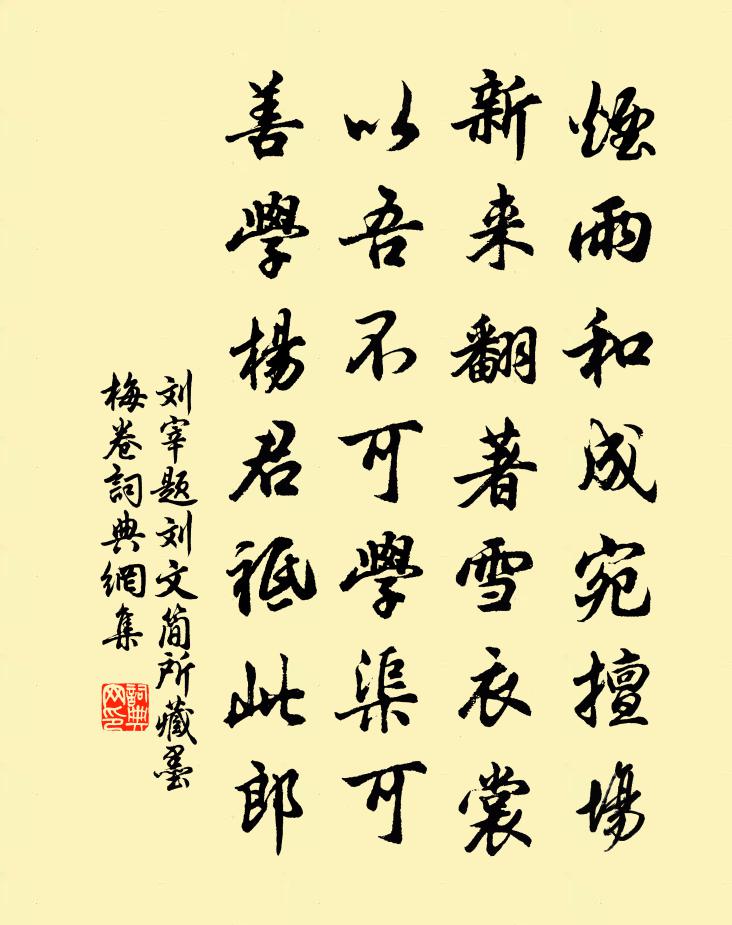 煙雨和成宛擅場
新来翻著雪衣裳
以吾不可學渠可
善學楊君祗此郎
刘宰题刘文简所藏墨
梅卷詞典網集
詞典网印